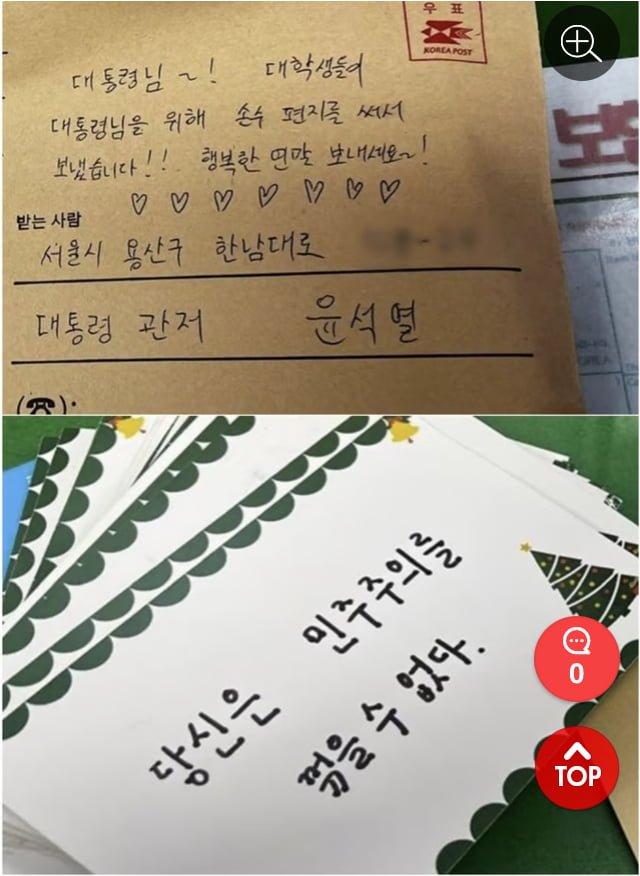 우 표
KOREA POST
대통령님~! 대학생들이
대통령님을 위해 손수 편지를 써서
보냈습니다!! 행복한 연말 보내세요~!
♡ ♡ ♡ ♡ ♡ ♡ ♡
받는 사람
서울시 용산구 한남대로
대통령 관저 윤석열
(☎):
당신은 민주주의를
꺾을 수 없다.
0
TOP